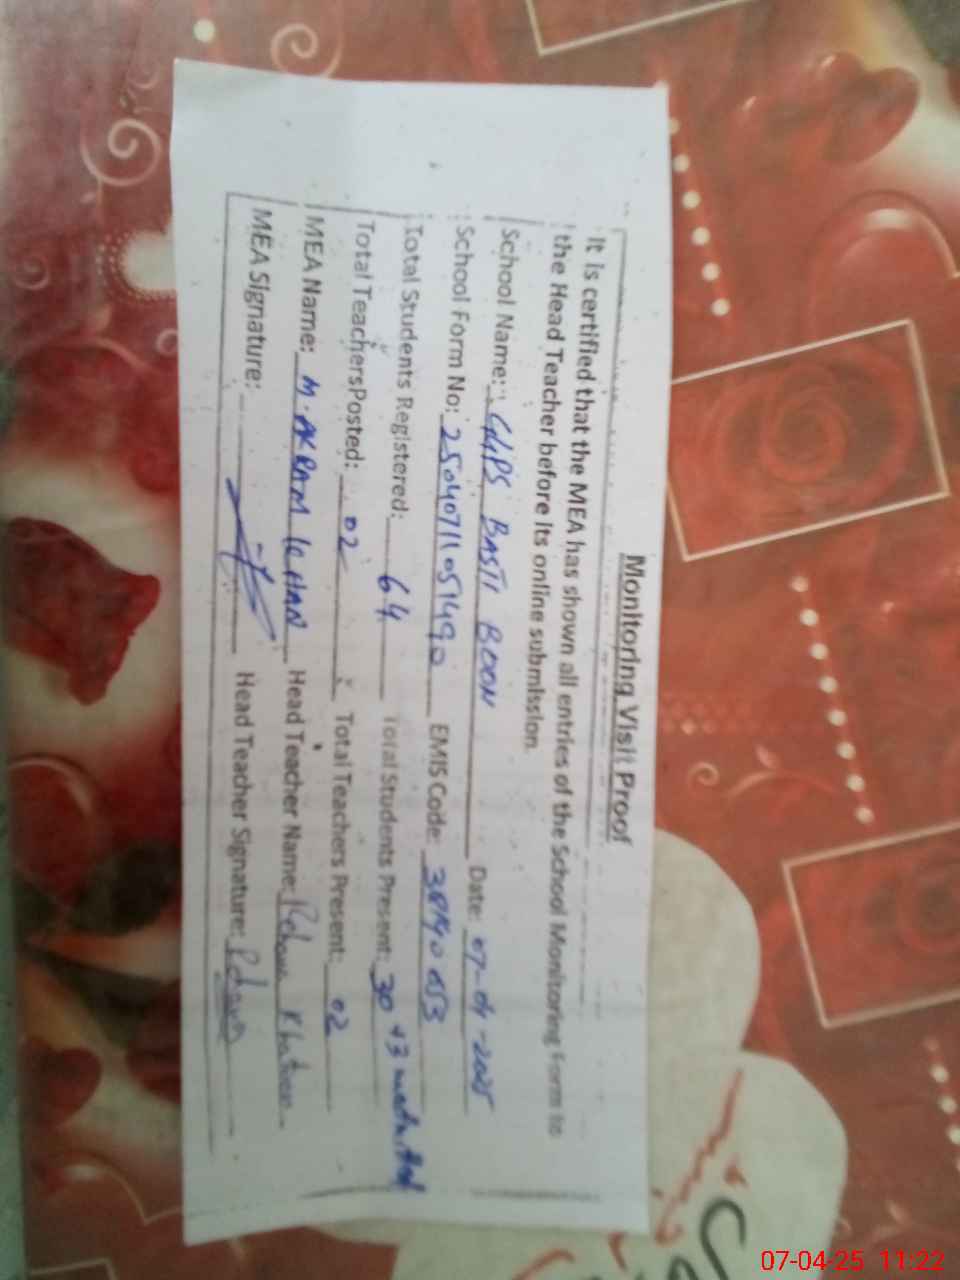 Monitoring Visit Proof
It is certified that the MEA has shown all entries of the School Monitoring Form to
the Head Teacher before its online submission.
School Name: GMPS BASTI BOON Date: 07-04-2025
School Form No: 25040711051490 EMIS Code:
Total Students Registered: 64 Total Students Present: 30 +3
Total Teachers Posted: 02 Total Teachers Present: 02
MEA Name: M. AKRAM KHAN Head Teacher Name: Rehana Khatoon
MEA Signature: Head Teacher Signature: Rehana
07-04-25 11:22